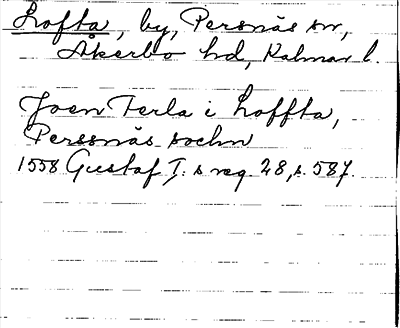 Lofta, by, Persnäs sn,
Åkerbo hd, Kalmar l.
Joen Terla i Loffta,
Perssnäs sochn
1558 Gustaf I:s reg. 28, s. 587.